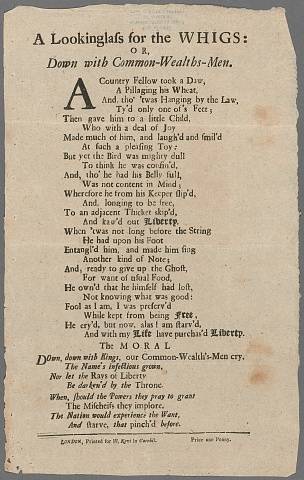 A Lookinglass for the WHIGS:
OR,
Down with Common-Wealths-Men.
A Country Fellow took a Daw,
A Pillaging his Wheat,
And, tho' 'twas Hanging by the Law,
Ty'd only one of's Feet;
Then gave him to a little Child,
Who with a deal of Joy
Made much of him, and laugh'd and smil'd
At such a pleasing Toy:
But yet the Bird was mighty dull
To think he was confin'd,
And, tho' he had his Belly full,
Was not content in Mind;
Wherefore he from his Keeper slip'd,
And, longing to be free,
To an adjacent Thicket skip'd,
And kaw'd out Liberty.
When 'twas not long before the String
He had upon his Foot
Entangl'd him, and made him sing
Another kind of Note;
And, ready to give up the Ghost,
For want of usual Food,
He own'd that he himself had lost,
Not knowing what was good:
Fool as I am, I was preserv'd
While kept from being Free,
He cry'd, but now, alas! am starv'd,
And with my Life have purchas'd Liberty.
The MORAL
Down, down with Kings, our Common-Wealth's-Men cry,
The Name's infectious grown,
Nor let the Rays of Liberty
Be darken'd by the Throne.
When, should the Powers they pray to grant
The Mischeifs they implore,
The Nation would experience the Want,
And starve, that pinch'd before.
LONDON, Printed for W. Kent in Cornhil. Price one Penny.